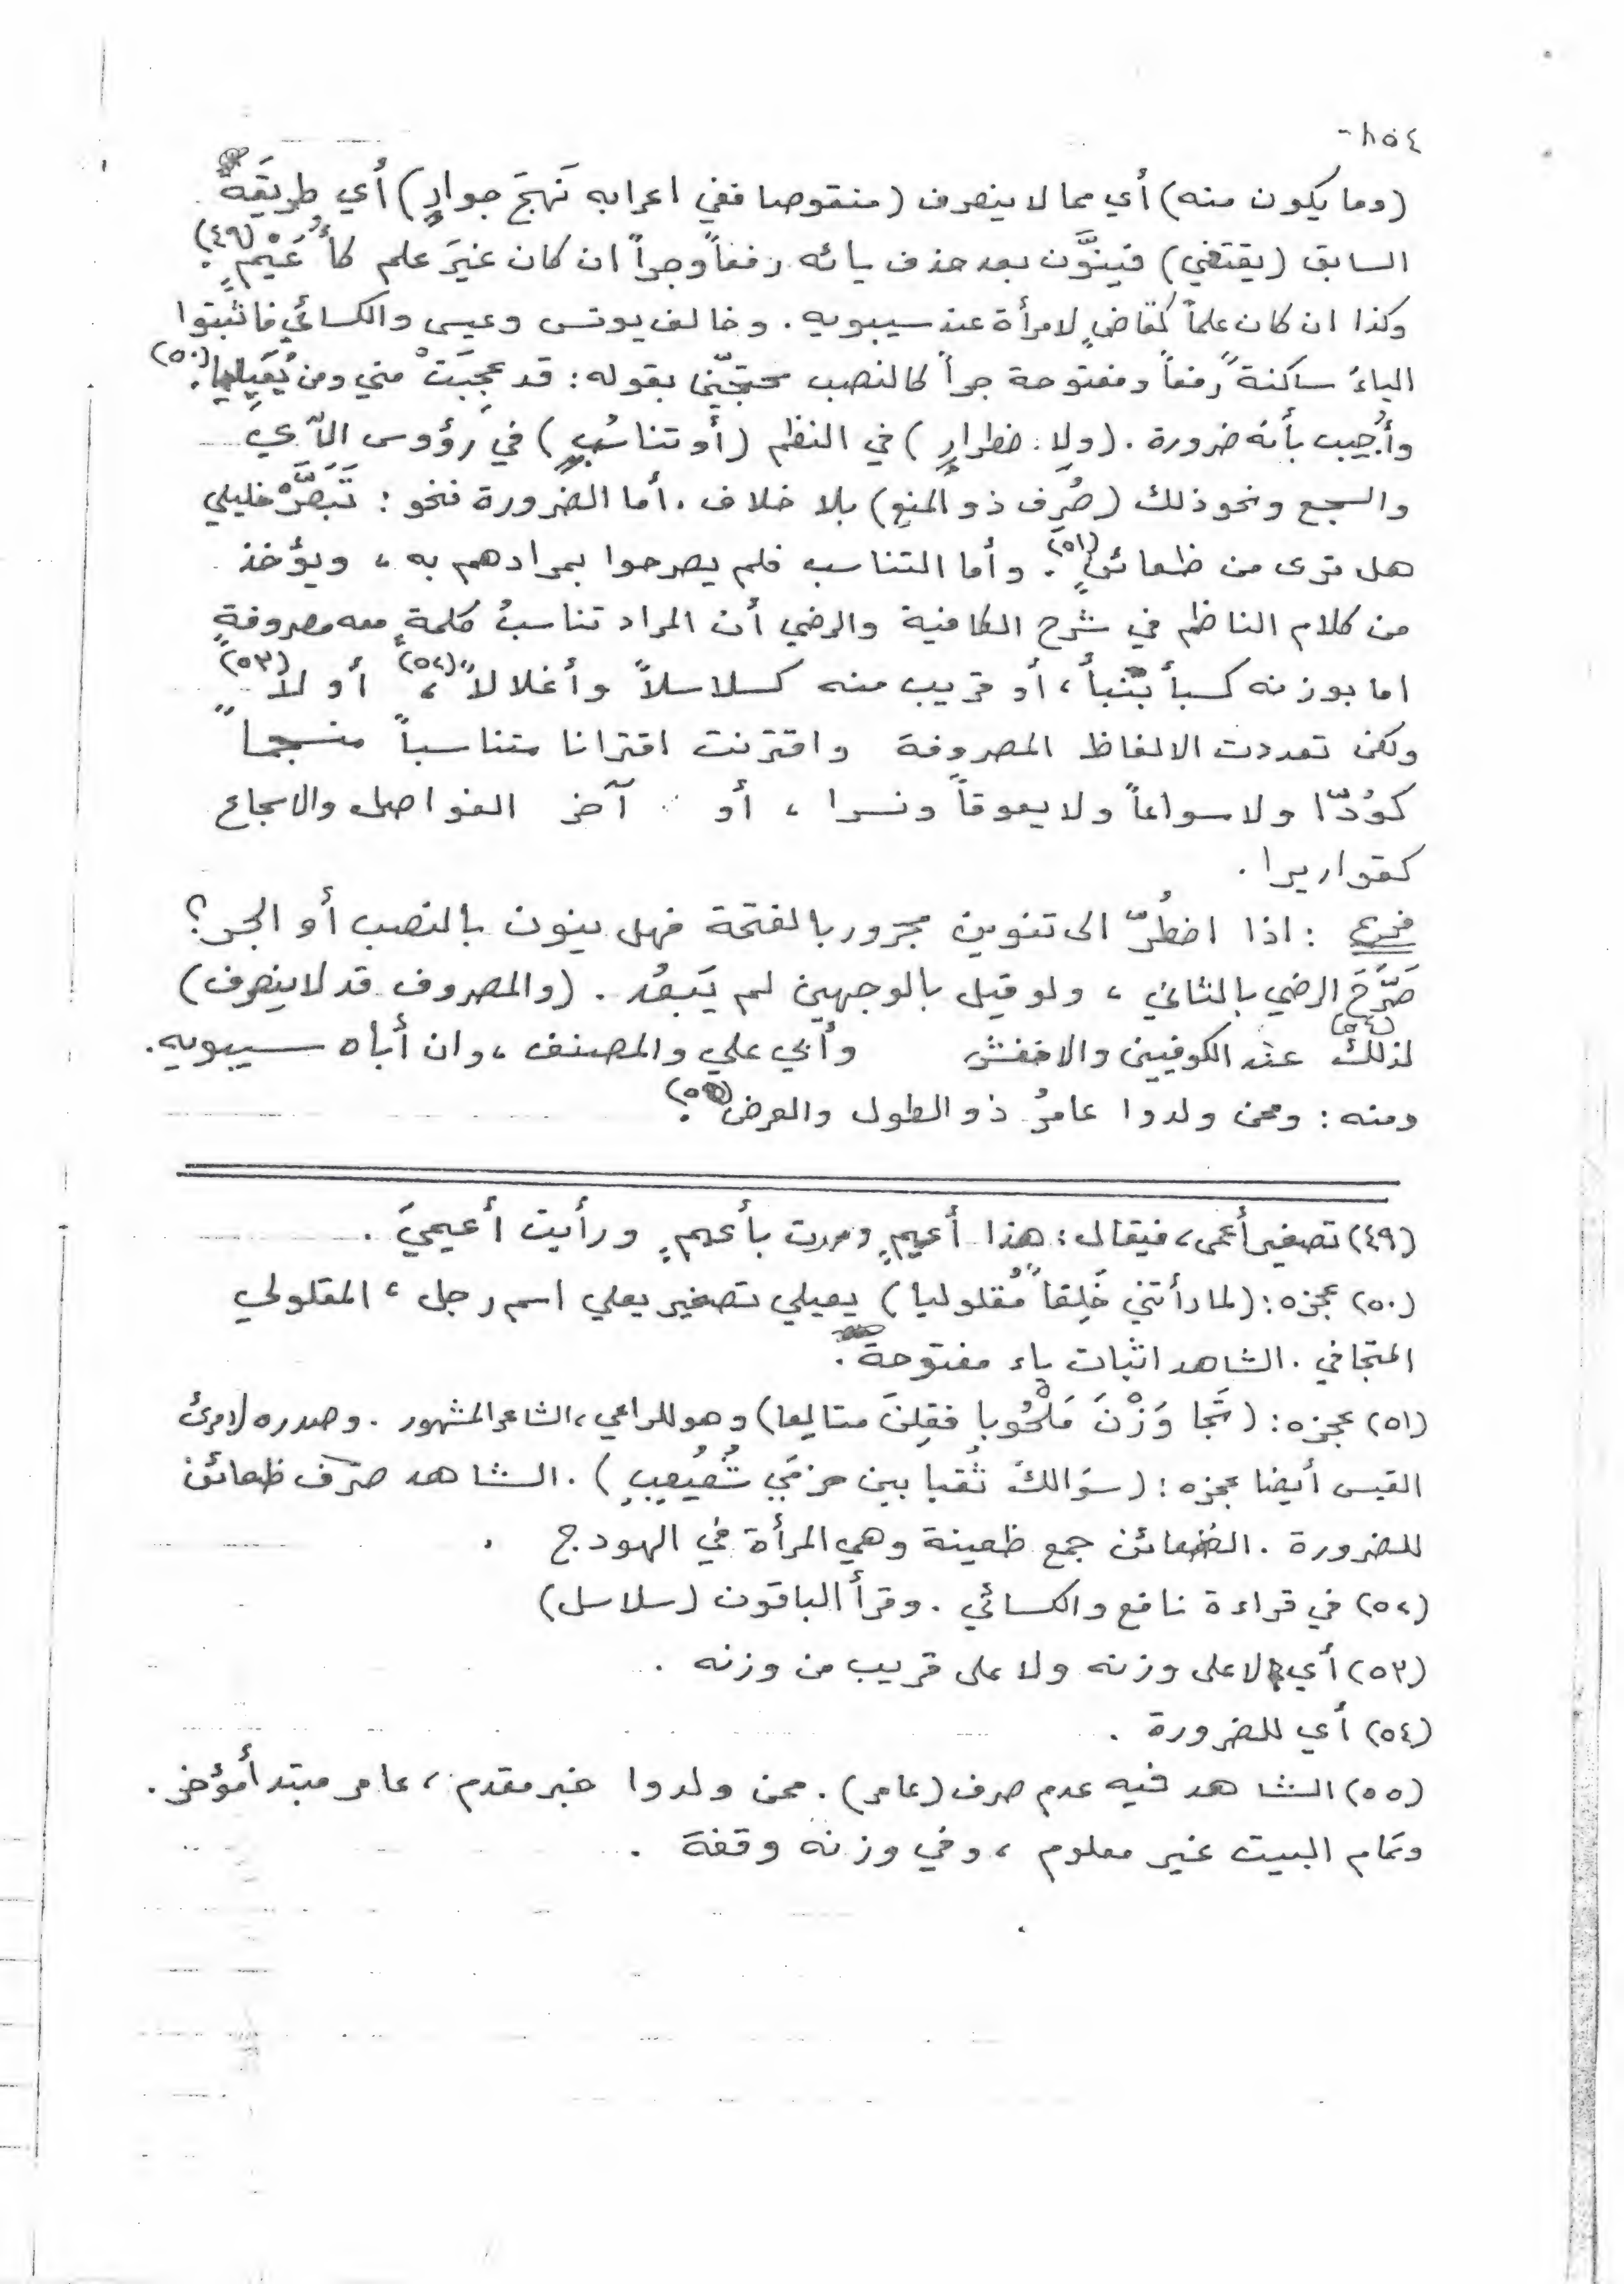 ٨٥٤-
(وما يكون منه) أي مما لا ينصرف (منقوصا ففي اعرابه نَهجَ جوارٍ) أي طريقَه
السابق (يقتفي) فينوَّن بعد حذف يائه رفعاً وجراً ان كان غيرَ علم كأُعَيْمٍ(٤٩).
وكذا ان كان علماً كقاضٍ لامرأة عند سيبويه . وخالف يونس وعيسى والكسائي فاثبتوا
الياءَ ساكنةً رفعاً ومفتوحة جراً كالنصب محتجّين بقوله : قد عجِبَتْ مني ومن يُعَيلِيا(٥٠).
وأُجيب بأنه ضرورة . (ولاِ ضطرارٍ) في النظم (أو تناسُبٍ) في رؤوس الآي
والسجع ونحو ذلك (صُرِف ذو المنعِ) بلا خلاف . أما الضرورة فنحو : تَبَصَّرْ خليلي
هل ترى من ظعائنٍ(٥١). وأما التناسب فلم يصرحوا بمرادهم به ، ويؤخذ
من كلام الناظم في شرح الكافية والرضي أن المراد تناسبُ كلمةٍ معه مصروفةٍ
اما بوزنه كسبأ بنبأ ، أو قريب منه كسلاسلاً وأغلالاً(٥٢)، أو لا(٥٣)
ولكن تعددت الالفاظ المصروفة واقترنت اقترانا متناسباً منسجماً
كوُدّا ولا سواعاً ولا يعوقاً ونسرا ، أو آخر الفواصل والاسجاع
كقواريرا .
فرع : اذا اضطُرّ الى تنوين مجرور بالفتحة فهل ينون بالنصب أو الجر ؟
صَرَّحَ الرضي بالثاني ، ولو قيل بالوجهين لم يَبعُد . (والمصروف قد لا ينصرف)
لذلك(٥٤) عند الكوفيين والاخفش وأبي علي والمصنف ، وان أباه سيبويه.
ومنه : وممن ولدوا عامرُ ذو الطول والعرض(٥٥).
(٤٩) تصغير أعمى ، فيقال : هذا أعيمٍ ومررت بأعيمٍ ورأيت أعيميَ .
(٥٠) عجزه : (لما رأتني خَلِقاً مُقلوليا) يعيلي تصغير يعلي اسم رجل ، المقلولي
المتجافي . الشاهد اثبات ياء مفتوحة .
(٥١) عجزه : (تجا وَزْنَ مَلْحُوبا فقِلنَ متالعا) وهو للراعي ، الشاعر المشهور . وصدره لامرئ
القيس أيضا عجزه : (سوَالكَ نقبا بين حزمَي شُعَيعِبِ) . الشاهد صرف ظعائن
للضرورة . الظعائن جمع ظعينة وهي المرأة في الهودج .
(٥٢) في قراءة نافع والكسائي . وقرأ الباقون (سلاسل)
(٥٣) أي لا على وزنه ولا على قريب من وزنه .
(٥٤) أي للضرورة .
(٥٥) الشاهد فيه عدم صرف (عامر) . ممن ولدوا خبر مقدم ، عامر مبتدأ مؤخر .
وتمام البيت غير معلوم ، وفي وزنه وقفة .